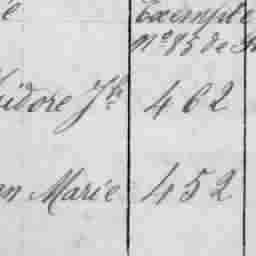 Exempte
N° 85 de
idore Jh 462
Marie 452